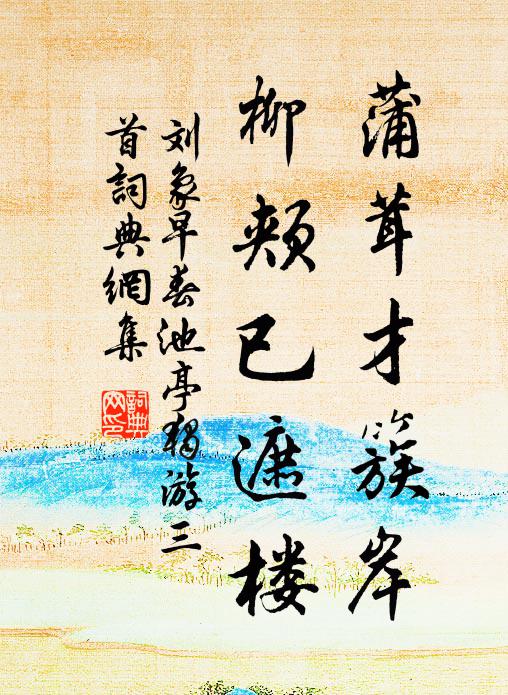 蒲茸才簇岸
柳颊已遮楼
刘象早春池亭独游三
首詞典網集
詞典
网印